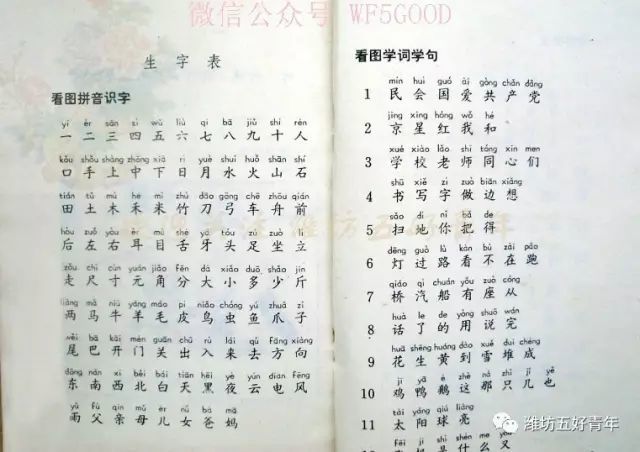 微信公众号 WF5GOOD
生字表
看图拼音识字
yī èr sān sì wǔ liù qī bā jiǔ shí rén
一二三四五六七八九十人
kǒu shǒu shàng zhōng xià rì yuè shuǐ huǒ shān shí
口手上中下日月水火山石
tián tǔ mù hé mǐ zhú dāo gōng chē zhōu qián
田土木禾米竹刀弓车舟前
hòu zuǒ yòu ěr mù shé yá tóu zú zuò lì
后左右耳目舌牙头足坐立
zǒu chǐ cùn yuán jiǎo fēn dà xiǎo duō shǎo jīn
走尺寸元角分大小多少斤
liǎng mǎ niú yáng máo pí niǎo chóng yú zhuǎ zi
两马牛羊毛皮鸟虫鱼爪子
wěi bā kāi mén guān chū rù lái qù fāng xiàng
尾巴开门关出入来去方向
dōng nán xī běi bái tiān hēi yè yún diàn fēng
东南西北白天黑夜云电风
yǔ fù qīn mǔ ér nǚ bà mā
雨父亲母儿女爸妈
看图学词学句
mín huì guó ài gòng chǎn dǎng
1 民会国爱共产党
jīng xīng hóng wǒ hé
2 京星红我和
xué xiào lǎo shī tóng xīn men
3 学校老师同心们
shū xiě zì zuò biān xiǎng
4 书写字做边想
sǎo dì nǐ bǎ de
5 扫地你把得
dēng guò lù kàn bù zài pǎo
6 灯过路看不在跑
qiáo qì chuán yǒu zuò cóng
7 桥汽船有座从
huà le de yòng shuō wán
8 话了的用说完
huā shēng huáng dào xuě duī chéng
9 花生黄到雪堆成
jī yā é zhè nà zhī ér yě
10 鸡鸭鹅这那只儿也
tài yáng qiú liàng
11 太阳球亮
fēi jī shì shén me yòu
飞机是什么又
潍坊五好青年